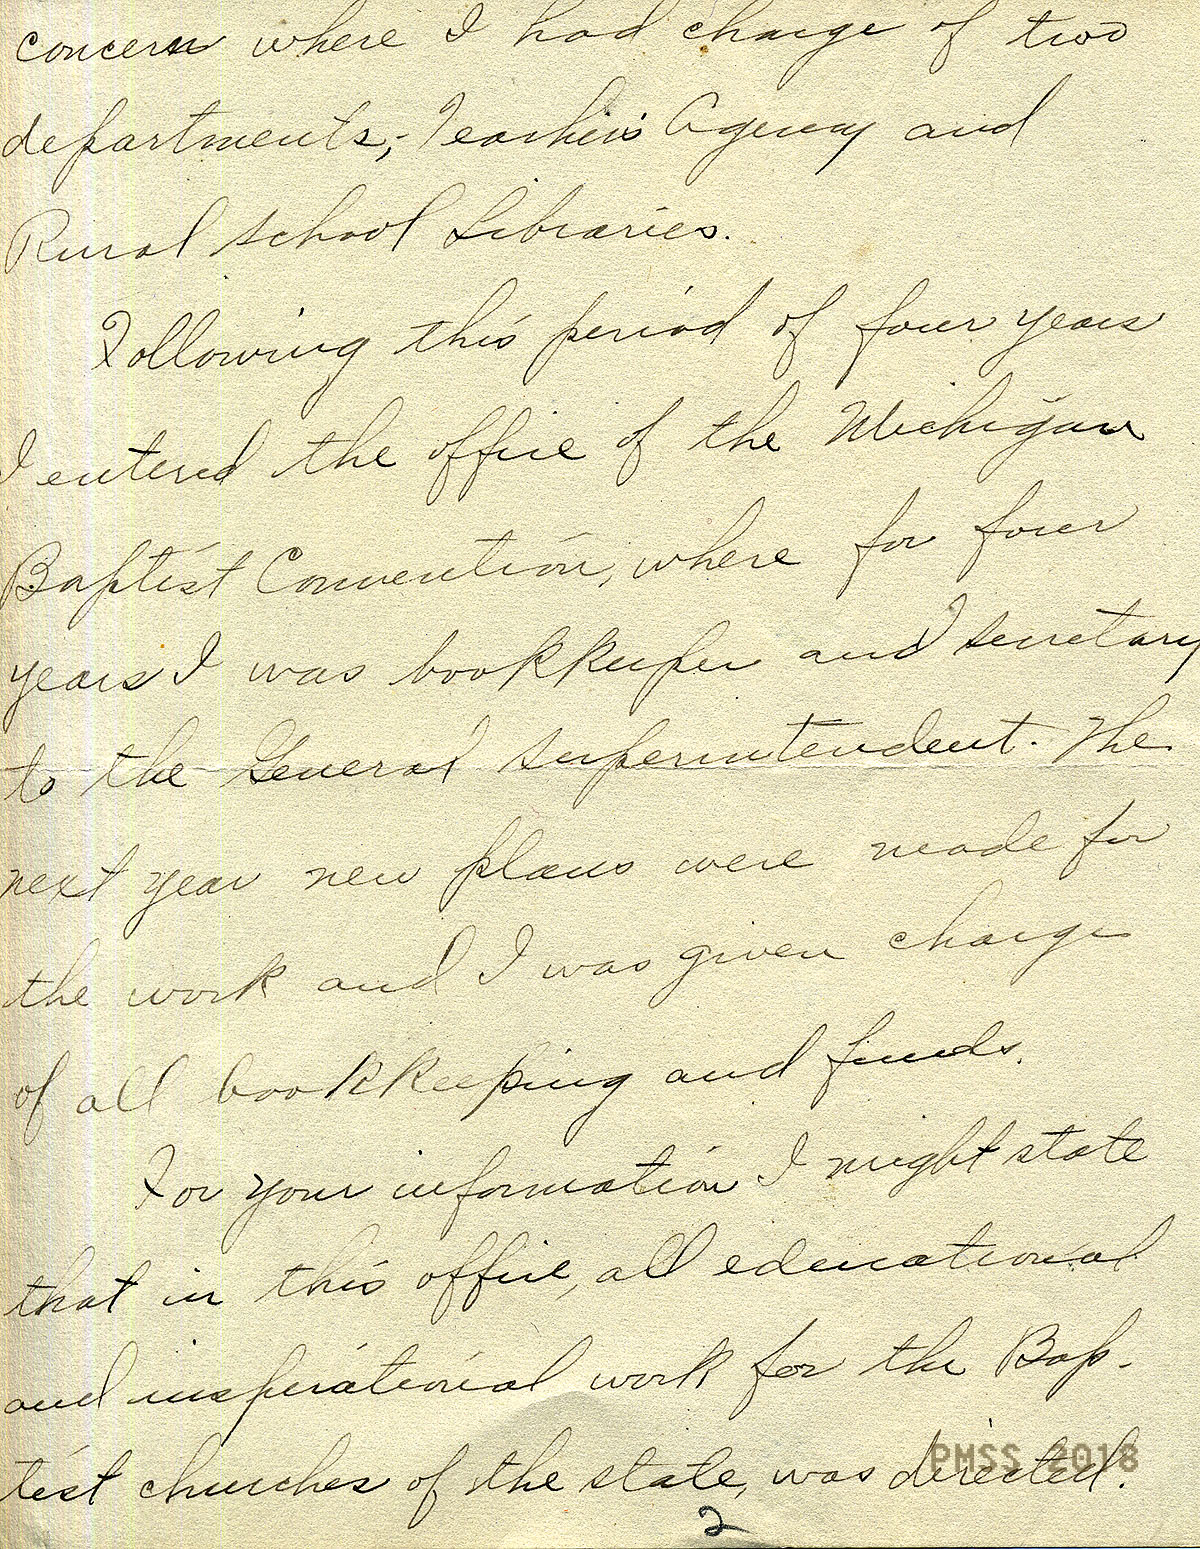 concern where I had charge of two
departments,- Teacher's Agency and
Rural School Libraries.
Following this period of four years
I entered the office of the Michigan
Baptist Convention, where for four
years I was bookkeeper and secretary
to the General Superintendent. The
next year new plans were made for
the work and I was given charge
of all bookkeeping and funds.
For your information I might state
that in this office, all educational
and inspirational work for the Bap-
tist churches of the state, was directed.
PMSS 2018
2